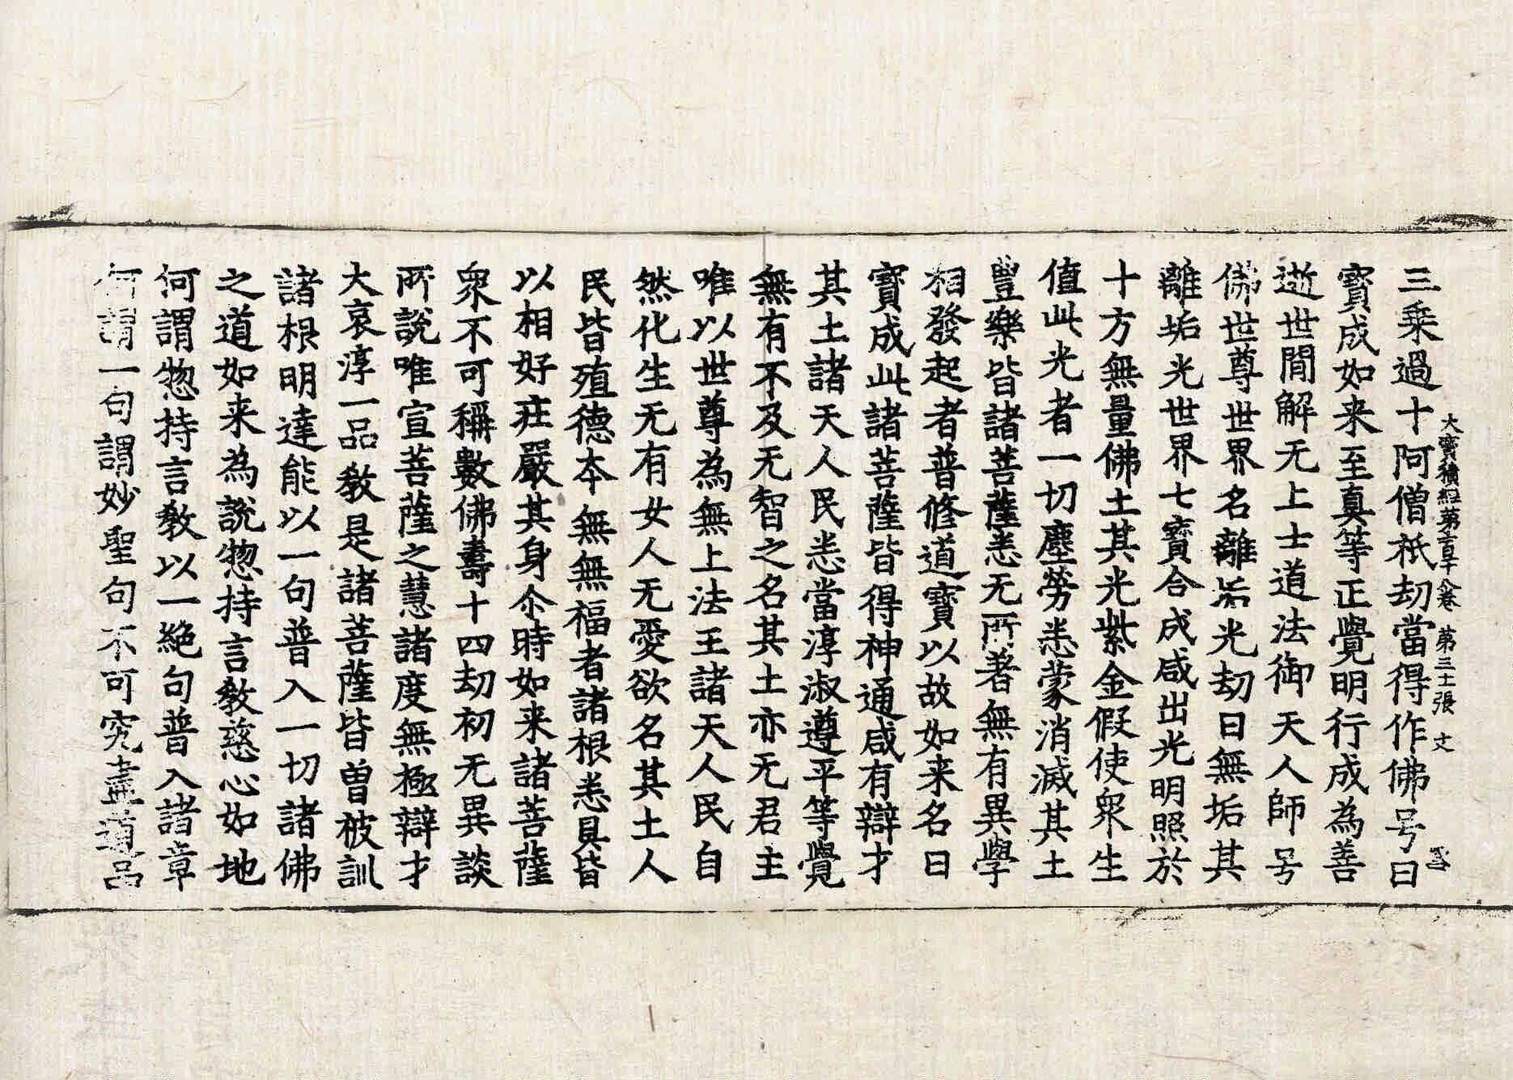 大寶積經第一百十八卷 第三十張 文
三乘過十阿僧祇劫當得作佛号曰
寳成如来至真等正覺明行成為善
逝世間解无上士道法御天人師号
佛世尊世界名離垢光劫曰無垢其
離垢光世界七寳合成咸出光明照於
十方無量佛土其光紫金假使衆生
值此光者一切塵勞悉蒙消滅其土
豊樂皆諸菩薩悉无所著無有異學
相發起者普修道寳以故如来名曰
寳成此諸菩薩皆得神通咸有辯才
其土諸天人民悉當淳淑遵平等覺
無有不及无智之名其土亦无君主
唯以世尊為無上法王諸天人民自
然化生无有女人无愛欲名其土人
民皆殖德本無無福者諸根悉具皆
以相好莊嚴其身尒時如来諸菩薩
衆不可稱數佛壽十四劫初无異談
所說唯宣菩薩之慧諸度無極辯才
大哀淳一品教是諸菩薩皆曾被訓
諸根明達能以一句普入一切諸佛
之道如来為說惣持言教慈心如地
何謂惣持言教以一絕句普入諸章
何謂一句謂妙聖句不可究盡道品